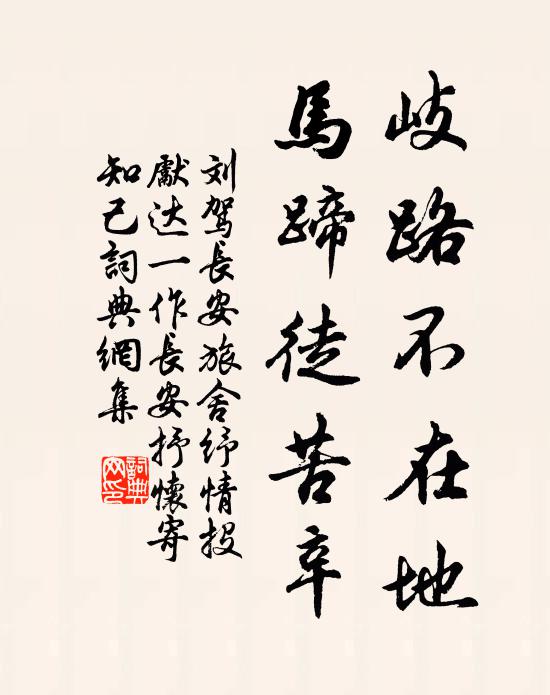 岐路不在地
馬蹄徒苦辛
刘駕長安旅舍纾情投
獻达一作長安抒懷寄
知己詞典網集
詞典网印